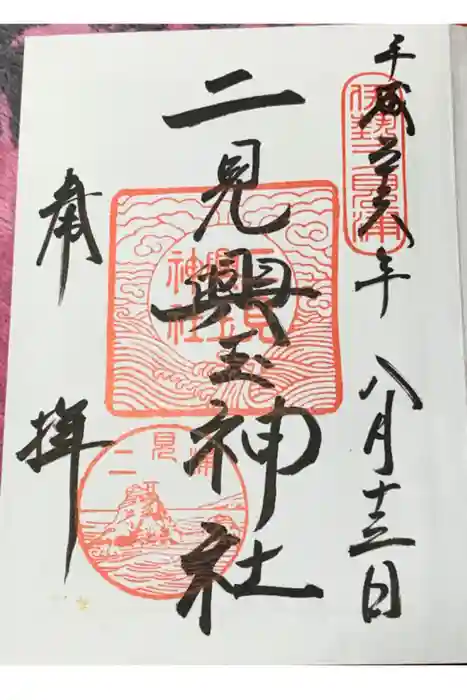 平成二十六年 八月十三日
伊勢二見浦
二見興玉神社
二見興玉神社
二見浦
奉拝